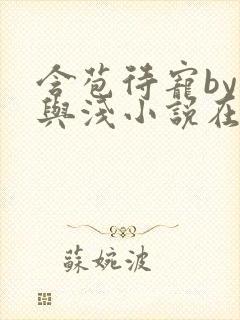 含苞待寵by
與淺小說在
蘇婉波